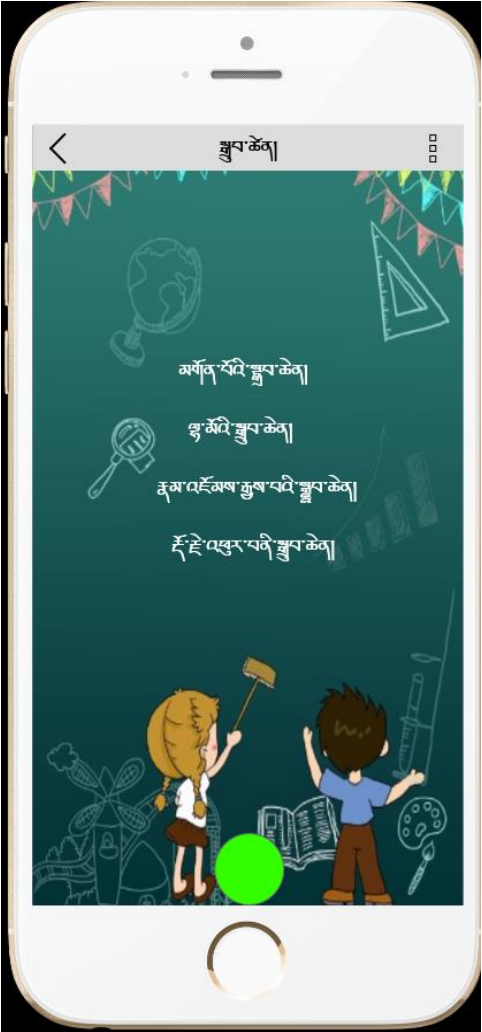 སྒྲུབ་ཆེན།
མགོན་པོའི་སྒྲུབ་ཆེན།
ལྷ་མོའི་སྒྲུབ་ཆེན།
རྣམ་འཇོམས་རྒྱས་པའི་སྒྲུབ་ཆེན།
རྡོ་རྗེ་འཕུར་པནི་སྒྲུབ་ཆེན།